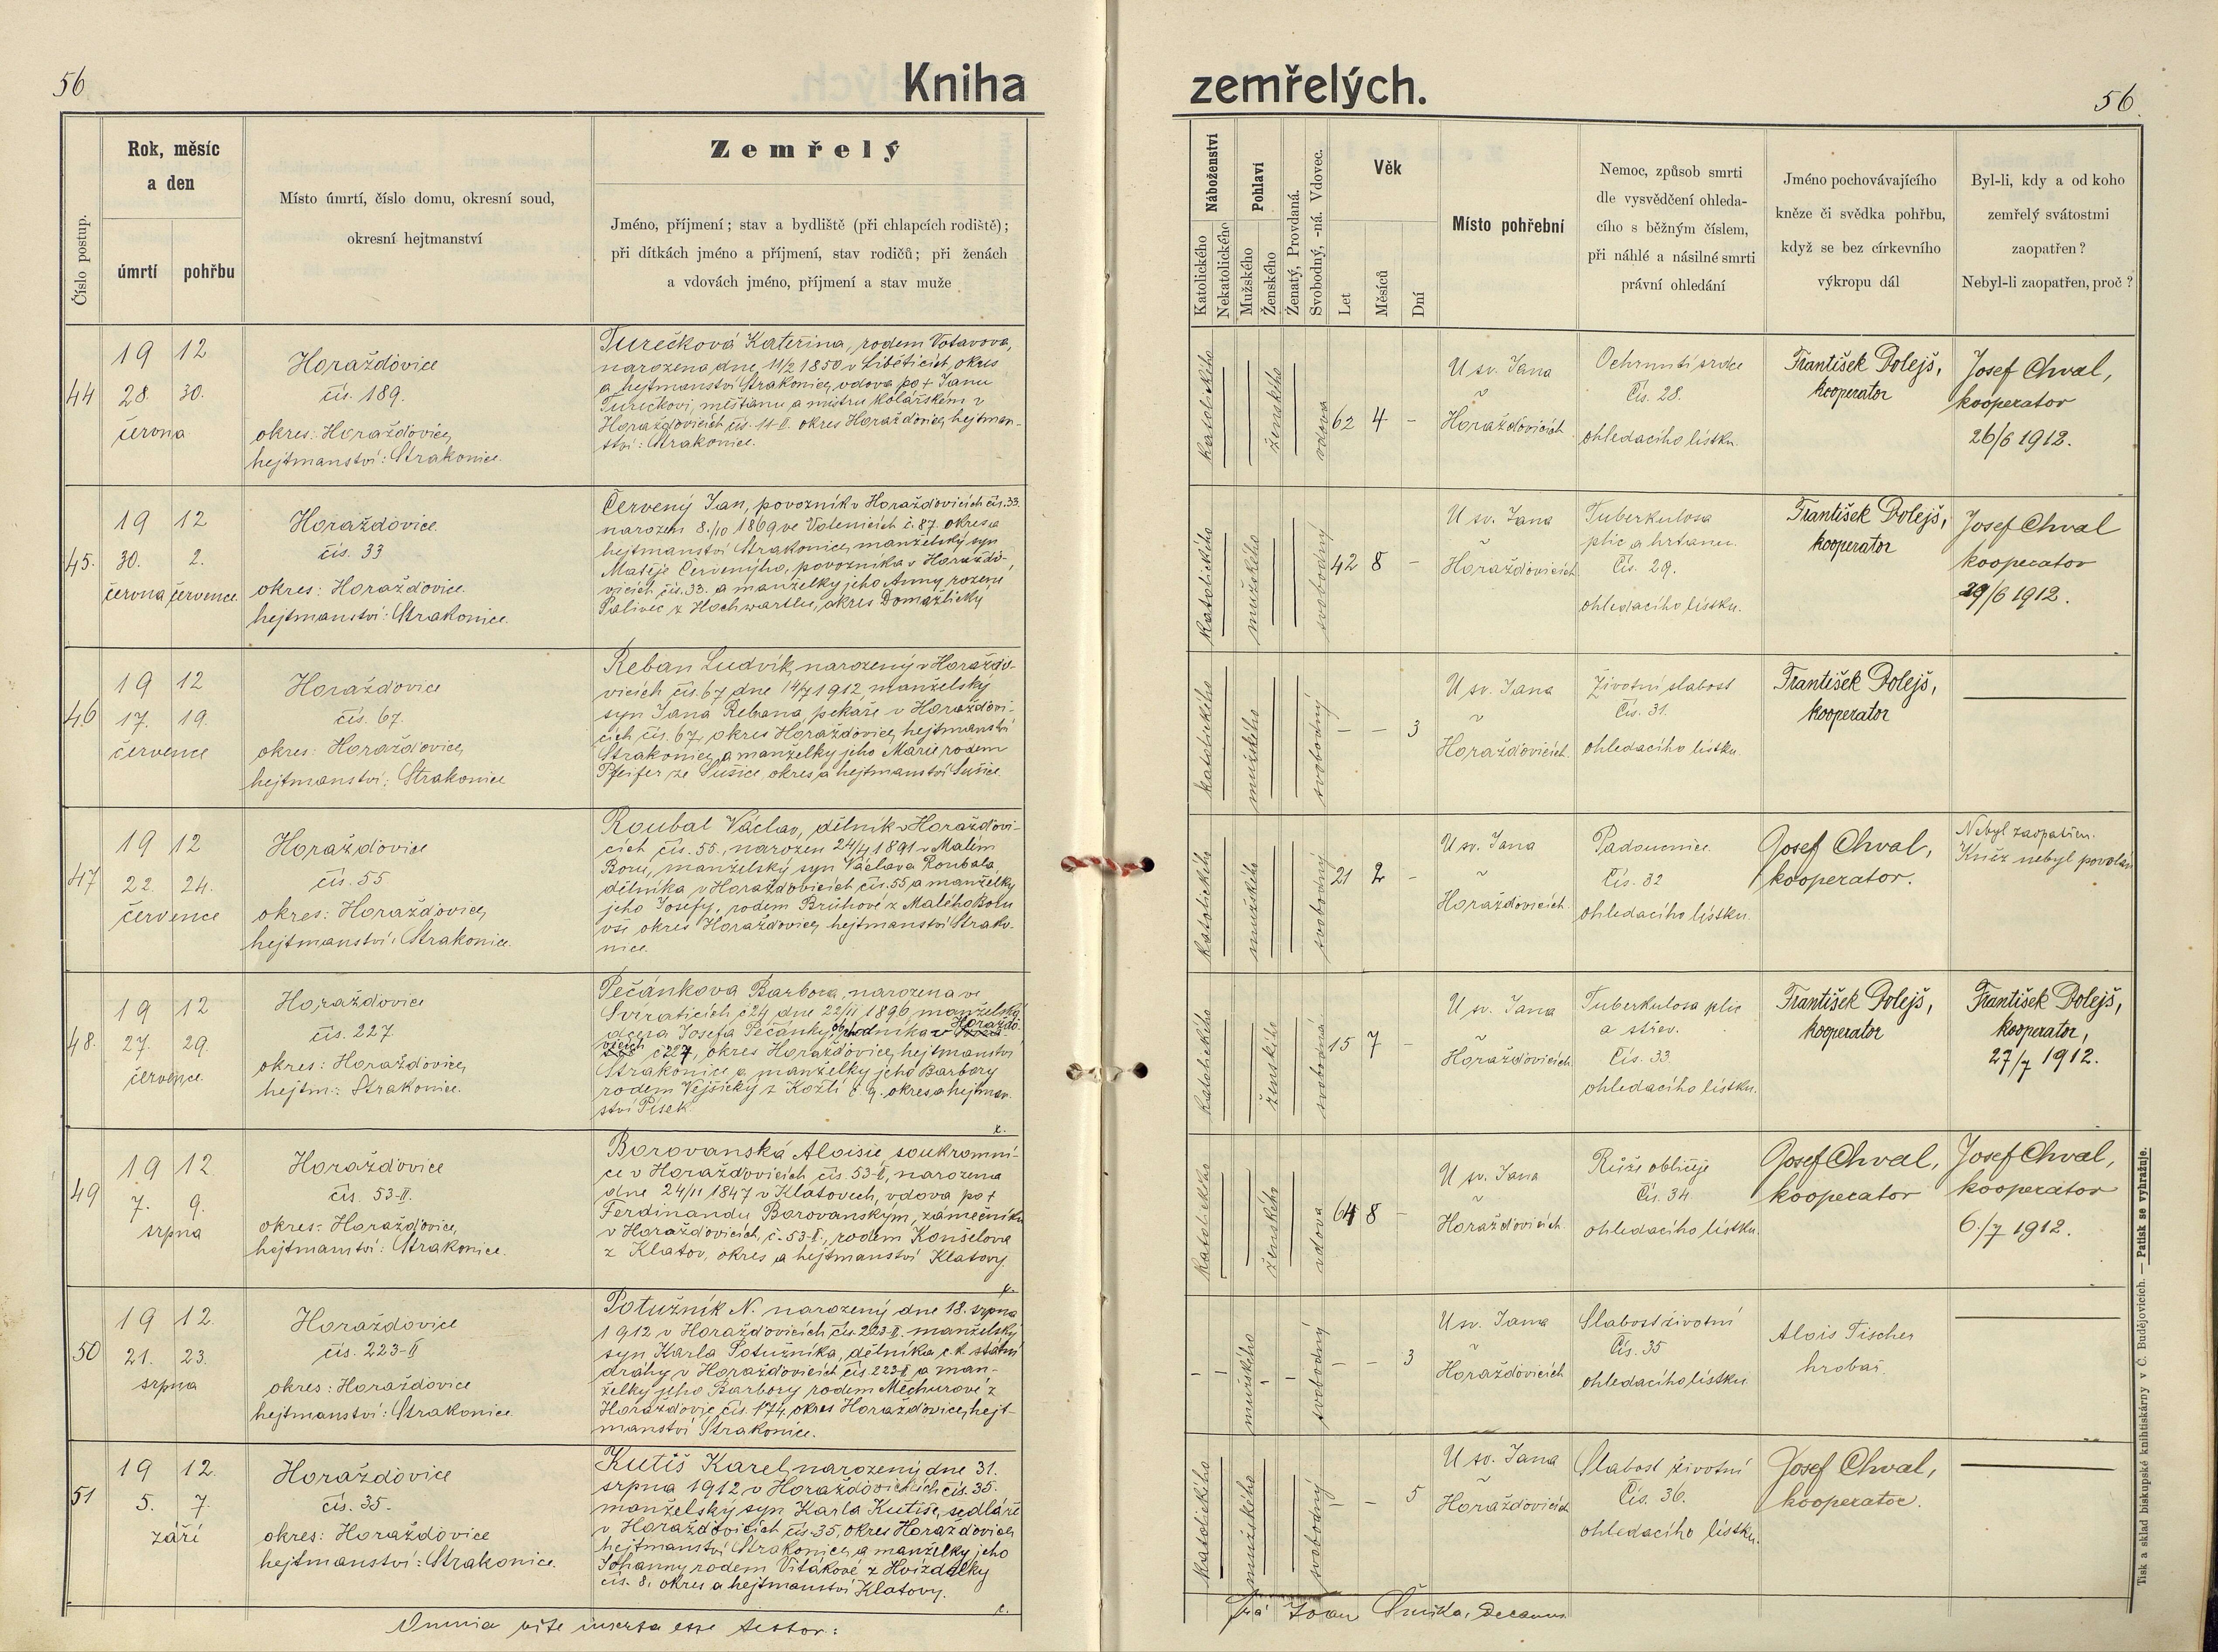 56
Kniha
zemřelých.
56
Číslo postup.
Rok, měsíc
a den
úmrtí
pohřbu
Místo úmrtí, číslo domu, okresní soud,
okresní hejtmanství
Zemřelý
Jméno, příjmení; stav a bydliště (při chlapcích rodiště);
při dítkách jméno a příjmení, stav rodičů; při ženách
a vdovách jméno, příjmení a stav muže
Náboženství
Katolického
Nekatolického
Pohlaví
Mužského
Ženského
Ženatý, Provdaná.
Svobodný, -ná. Vdovec.
Věk
Let
Měsíců
Dní
Místo pohřební
Nemoc, způsob smrti
dle vysvědčení ohleda-
cího s běžným číslem,
při náhlé a násilné smrti
právní ohledání
Jméno pochovávajícího
kněze či svědka pohřbu,
když se bez církevního
výkropu dál
Byl-li, kdy a od koho
zemřelý svátostmi
zaopatřen?
Nebyl-li zaopatřen, proč?
44
19 12
28. 30.
června
Horažďovice
čís. 189.
okres: Horažďovice,
hejtmanství: Strakonice.
Turečková Kateřina, rodem Votavova,
narozena dne 11/2 1850 v Liběticích, okres
a hejtmanství Strakonice, vdova po + Janu
Turečkovi, měšťanu a mistru kolářském v
Horažďovicích čís. 11-II. okres Horažďovice, hejtman-
ství: Strakonice.
katolického
ženského
vdova
62 4 -
U sv. Jana
v
Horažďovicích
Ochrnutí srdce
Čís. 28.
ohledacího lístku.
František Dolejš,
kooperator
Josef Chval,
kooperator
26/6 1912.
45.
19 12
30. 2.
června července
Horažďovice
čís. 33
okres: Horažďovice.
hejtmanství: Strakonice.
Červený Jan, povozník v Horažďovicích čís. 33.
narozen 8./10 1869 ve Volenicích č. 87. okres a
hejtmanství Strakonice, manželský syn
Matěje Červenýho, povozníka v Horažďo-
vicích, čís. 33. a manželky jeho Anny rozené
Palivec z Hochwartlu, okres Domažlický
katolického
mužského
svobodný
42 8 -
U sv. Jana
v
Horažďovicích
Tuberkulosa
plic a hrtanu.
Čís. 29.
ohledacího lístku.
František Dolejš,
kooperator
Josef Chval
kooperator
29/6 1912.
46
19 12
17. 19.
července
Horažďovice
čís. 67.
okres: Horažďovice,
hejtmanství: Strakonice
Reban Ludvík, narozený v Horažďo-
vicích čís. 67 dne 14/7 1912, manželský
syn Jana Rebana, pekaře v Horažďovi-
cích čís. 67, okres Horažďovice, hejtmanství
Strakonice, a manželky jeho Marie rodem
Pfeifer ze Sušice, okres a hejtmanství Sušice.
katolického
mužského
svobodný
- - 3
U sv. Jana
v
Horažďovicích.
Životní slabost
Čís. 31.
ohledacího lístku.
František Dolejš,
kooperator
47
19 12
22. 24.
července
Horažďovice
čís. 55
okres: Horažďovice,
hejtmanství: Strakonice.
Roubal Václav, dělník v Horažďovi-
cích čís. 55., narozen 24/4 1891 v Malém
Boru, manželský syn Václava Roubala,
dělníka v Horažďovicích čís. 55 a manželky
jeho Josefy, rodem Brůhové z Malého Boru
vše okres Horažďovice, hejtmanství Strako-
nice.
katolického
mužského
svobodný
21 2 -
U sv. Jana
v
Horažďovicích.
Padoucnice.
Čís. 32
ohledacího lístku.
Josef Chval,
kooperator.
Nebyl zaopatřen.
Kněz nebyl povolán
48.
19 12
27. 29.
července.
Horažďovice
čís. 227
okres: Horažďovice,
hejtm.: Strakonice.
Pečánkova Barbora, narozena ve
Sviraticích č 24 dne 22/11 1896, manželská
dcera Josefa Pečánky, obchodníka v Horažďo-
vicích č 227, okres Horažďovice, hejtmanství
Strakonice a manželky jeho Barbory
rodem Vejšický z Kožlí č 9. okres a hejtman-
ství Písek
katolického
ženského
svobodná
15 7 -
U sv. Jana
v
Horažďovicích
Tuberkulosa plic
a střev.
Čís. 33
ohledacího lístku.
František Dolejš,
kooperator
František Dolejš,
kooperator,
27/7 1912.
49
19 12.
7. 9.
srpna
Horažďovice
čís. 53-II.
okres: Horažďovice,
hejtmanství: Strakonice.
Borovanská Aloisie, soukromni-
ce v Horažďovicích čís. 53-I, narozena
dne 24/11 1847 v Klatovech, vdova po +
Ferdinandu Borovanským, zámečníku
v Horažďovicích, č. 53-I., rodem Konšelova
z Klatov, okres a hejtmanství Klatovy.
katolického
ženského
vdova
64 8 -
U sv. Jana
v
Horažďovicích
Růže obličeje
Čís. 34.
ohledacího lístku.
Josef Chval,
kooperator
Josef Chval,
kooperator
6./7 1912.
50
19 12.
21. 23.
srpna
Horažďovice
čís. 223-II
okres: Horažďovice
hejtmanství: Strakonice.
Potužník N. narozený dne 18. srpna
1912 v Horažďovicích čís. 223-II. manželský
syn Karla Potužníka, dělníka c. k. státní
dráhy v Horažďovicích čís. 223-II a man-
želky jeho Barbory rodem Měchurové z
Horažďovic, čís. 174, okres Horažďovice, hejt-
manství Strakonice.
mužského
svobodný
- - 3
U sv. Jana
v
Horažďovicích
Slabost životní
Čís. 35
ohledacího lístku
Alois Fischer
hrobař.
51
19 12.
5. 7.
září
Horažďovice
čís. 35.
okres: Horažďovice
hejtmanství: Strakonice.
Kutiš Karel, narozený dne 31.
srpna 1912 v Horažďovicích čís. 35.
manželský syn Karla Kutiše, sedláře
v Horažďovicích čís. 35, okres Horažďovice,
hejtmanství Strakonice, a manželky jeho
Johanny rodem Vitákové z Hvízdalky
čís. 8. okres a hejtmanství Klatovy.
katolického
mužského
svobodný
- - 5
U sv. Jana
v
Horažďovicích
Slabost životní
Čís. 36.
ohledacího lístku.
Josef Chval,
kooperator.
Omnia rite inserta esse testor:
Decanus
Tisk a sklad biskupské knihtiskárny v Č. Budějovicích. — Patisk se vyhražuje.